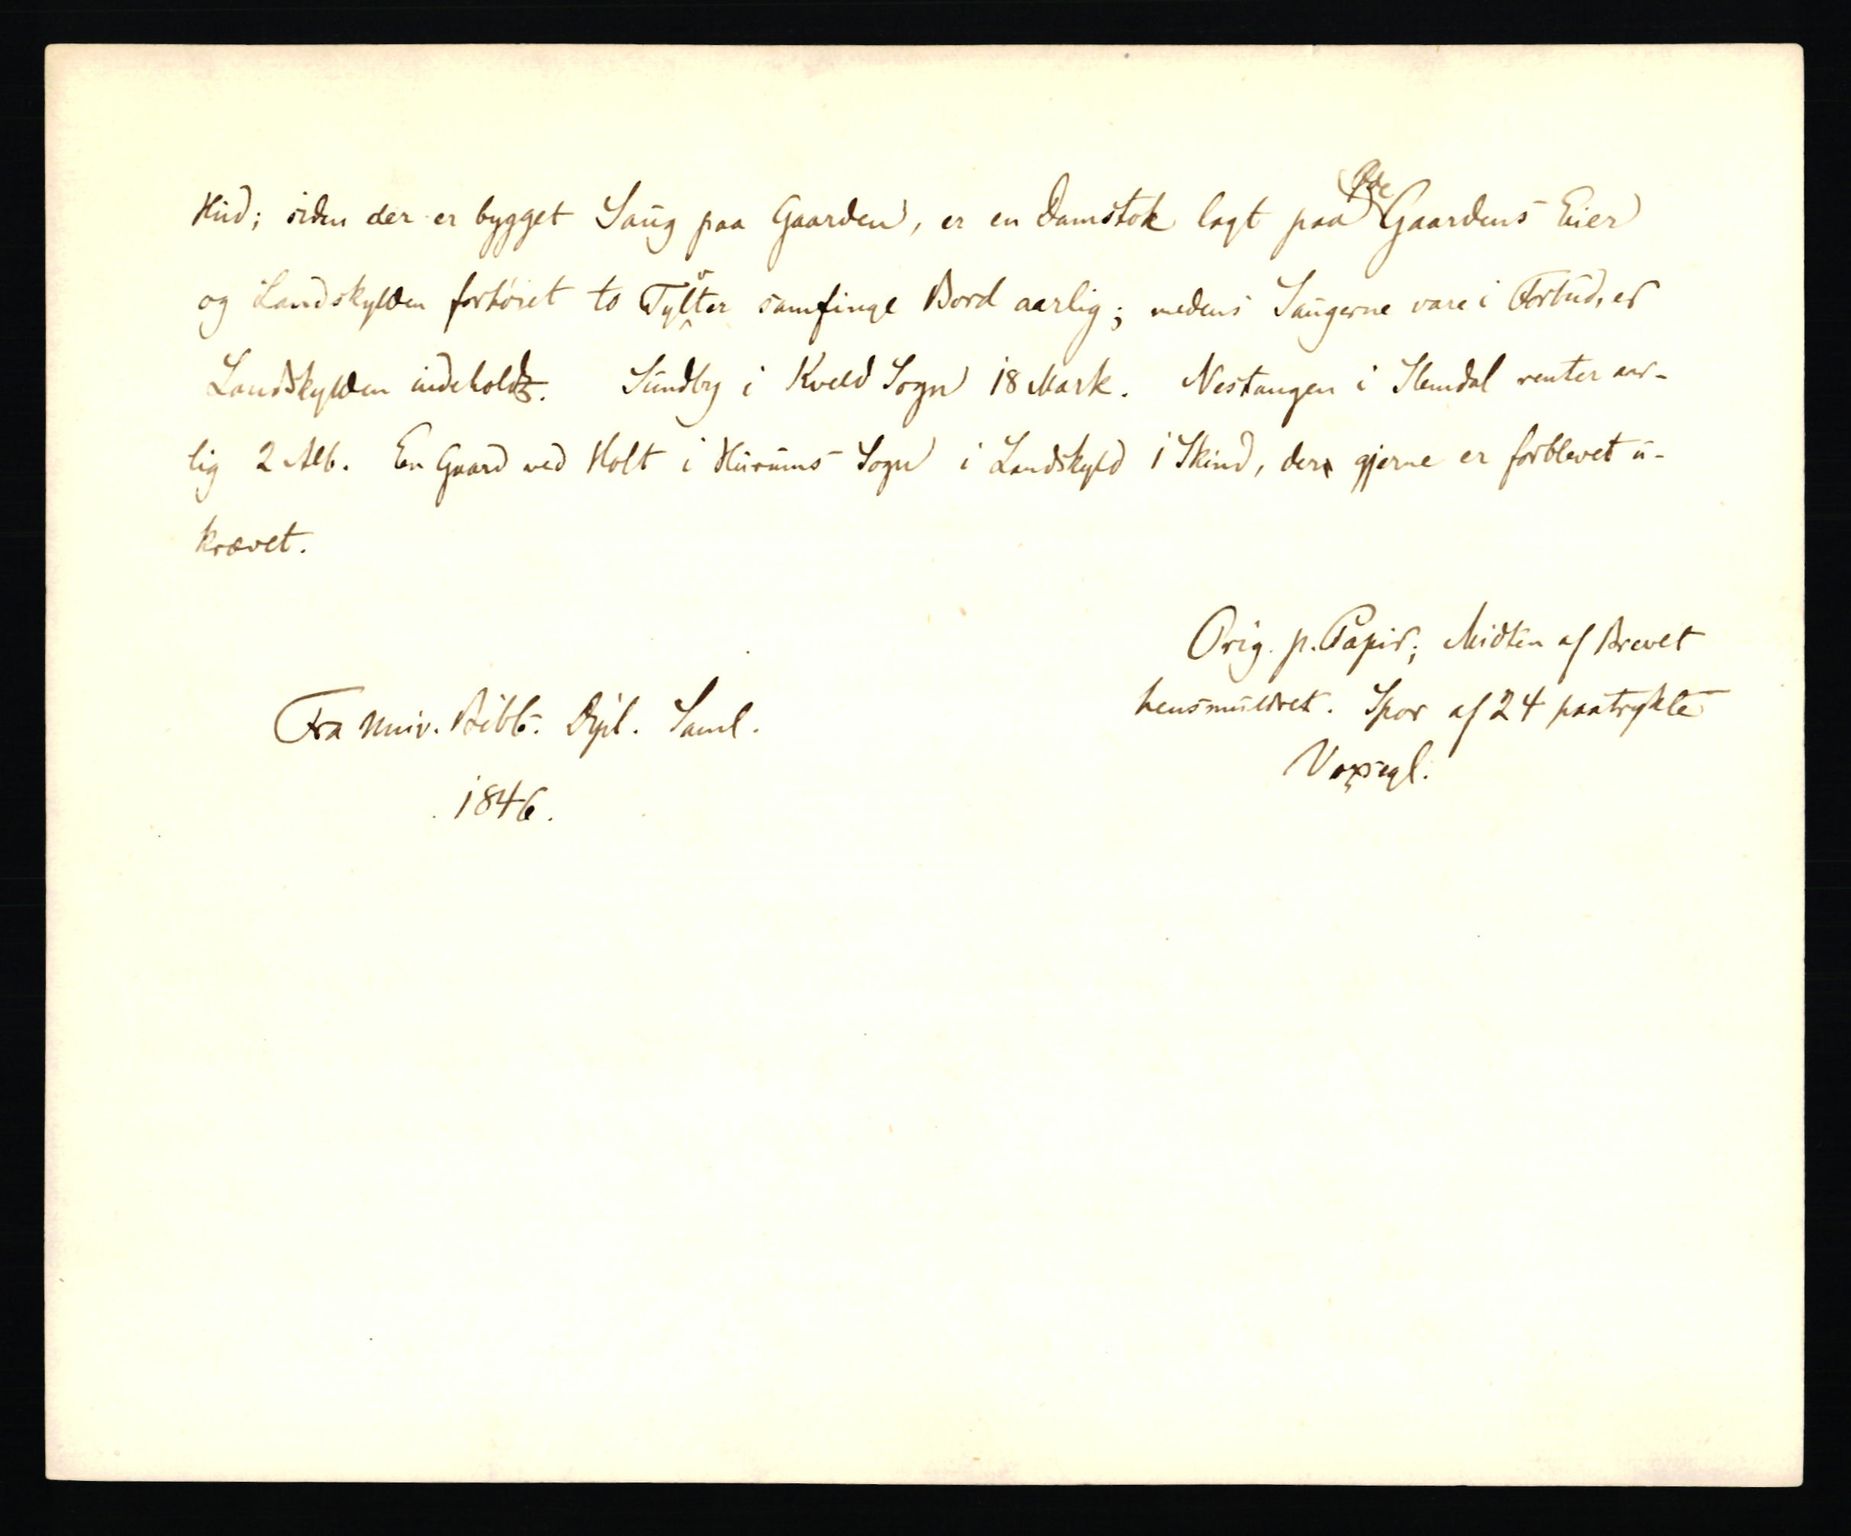 Hud; siden der er bygget Saug paa Gaarden, er en Damstok lagt paa Gaardens Eier
og Landskylden forhöiet to Tylter samfinge Bord aarlig; medens Saugerne vare i Forbud, er
Landskylden indeholdt. Sundby i Kveld Sogn 18 Mark. Nestangen i Slemdal renter aar-
lig 2 Alb. En Gaard ved Holt i Hurums Sogn i Landskyld 1 Skind, der gjerne er forblevet u-
krævet.
Orig. p. Papir; Midten af Brevet
hensmuldret. Spor af 24 paatrykte
Voxsegl.
Fra Univ. Bibls. Dipl. Saml.
1846.